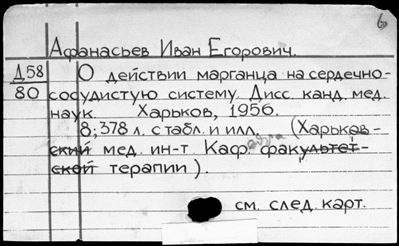 6
Афанасьев Иван Егорович.
Д58
80
О действии марганца на сердечно-
сосудистую систему. Дисс. канд. мед.
наук. Харьков, 1956.
8; 378 л. с табл. и илл. (Харьков-
ский мед. ин-т Каф. факультет-
ской терапии).
см. след. карт.